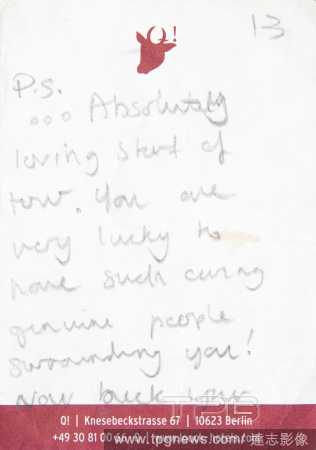 Q!
13
P.S.
... Absolutely
loving start of
tour. You are
very lucky to
have such caring
genuine people
surrounding you!
Now back
Q! | Knesebeckstrasse 67 | 10623 Berlin
+49 30 81 00 66 0
TPG
www.tpgnews.com 达志影像